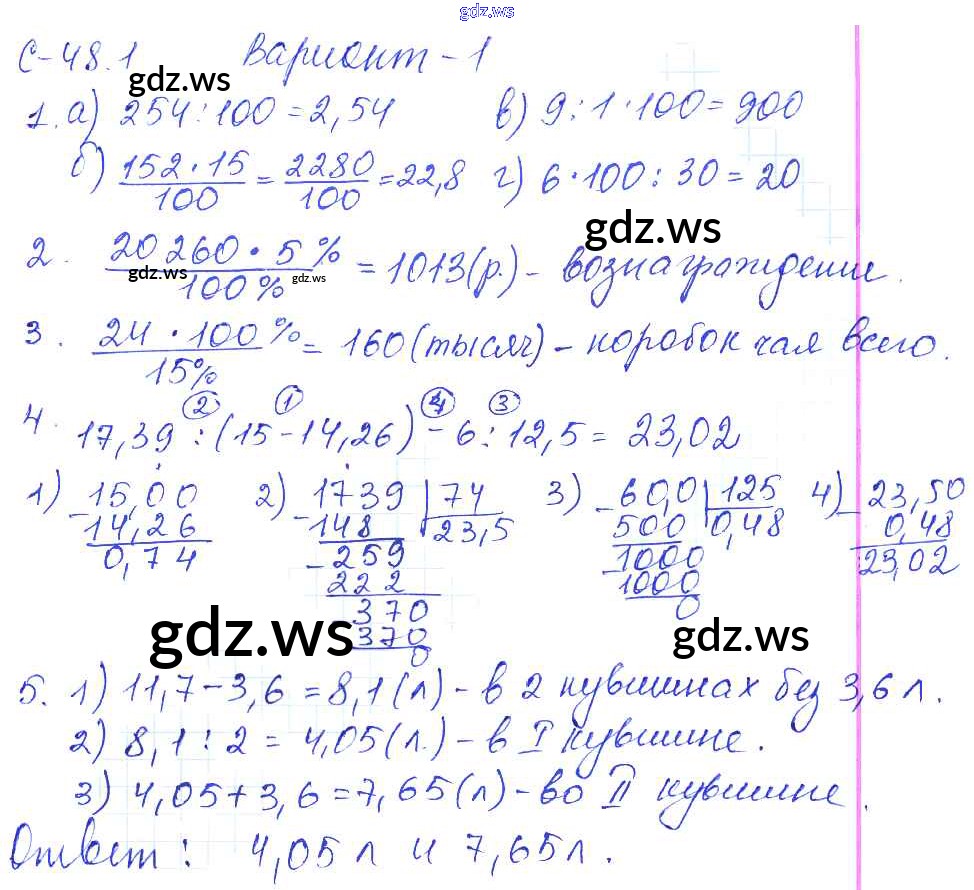 gdz.ws
С-48.1 Вариант-1
gdz.ws
1. а) 254:100=2,54 в) 9:1·100=900
б) 152·15/100 = 2280/100 = 22,8 г) 6·100:30=20
gdz.ws
2. 20 260·5%/100% = 1013(р.) - вознаграждение.
gdz.ws gdz.ws
3. 24·100%/15% = 160(тысяч) - коробок чая всего.
② ① ④ ③
4. 17,39:(15-14,26)-6:12,5=23,02
1) 15,00 2) 1739 | 74 3) 60,0 | 125 4) 23,50
-14,26 -148 23,5 -500 0,48 -0,48
0,74 -259 -1000 23,02
222 1000
370 0
370
0
gdz.ws gdz.ws
5. 1) 11,7-3,6=8,1(л) - в 2 кувшинах без 3,6 л.
2) 8,1:2=4,05(л.) - в I кувшине.
3) 4,05+3,6=7,65(л) - во II кувшине.
Ответ: 4,05 л и 7,65 л.